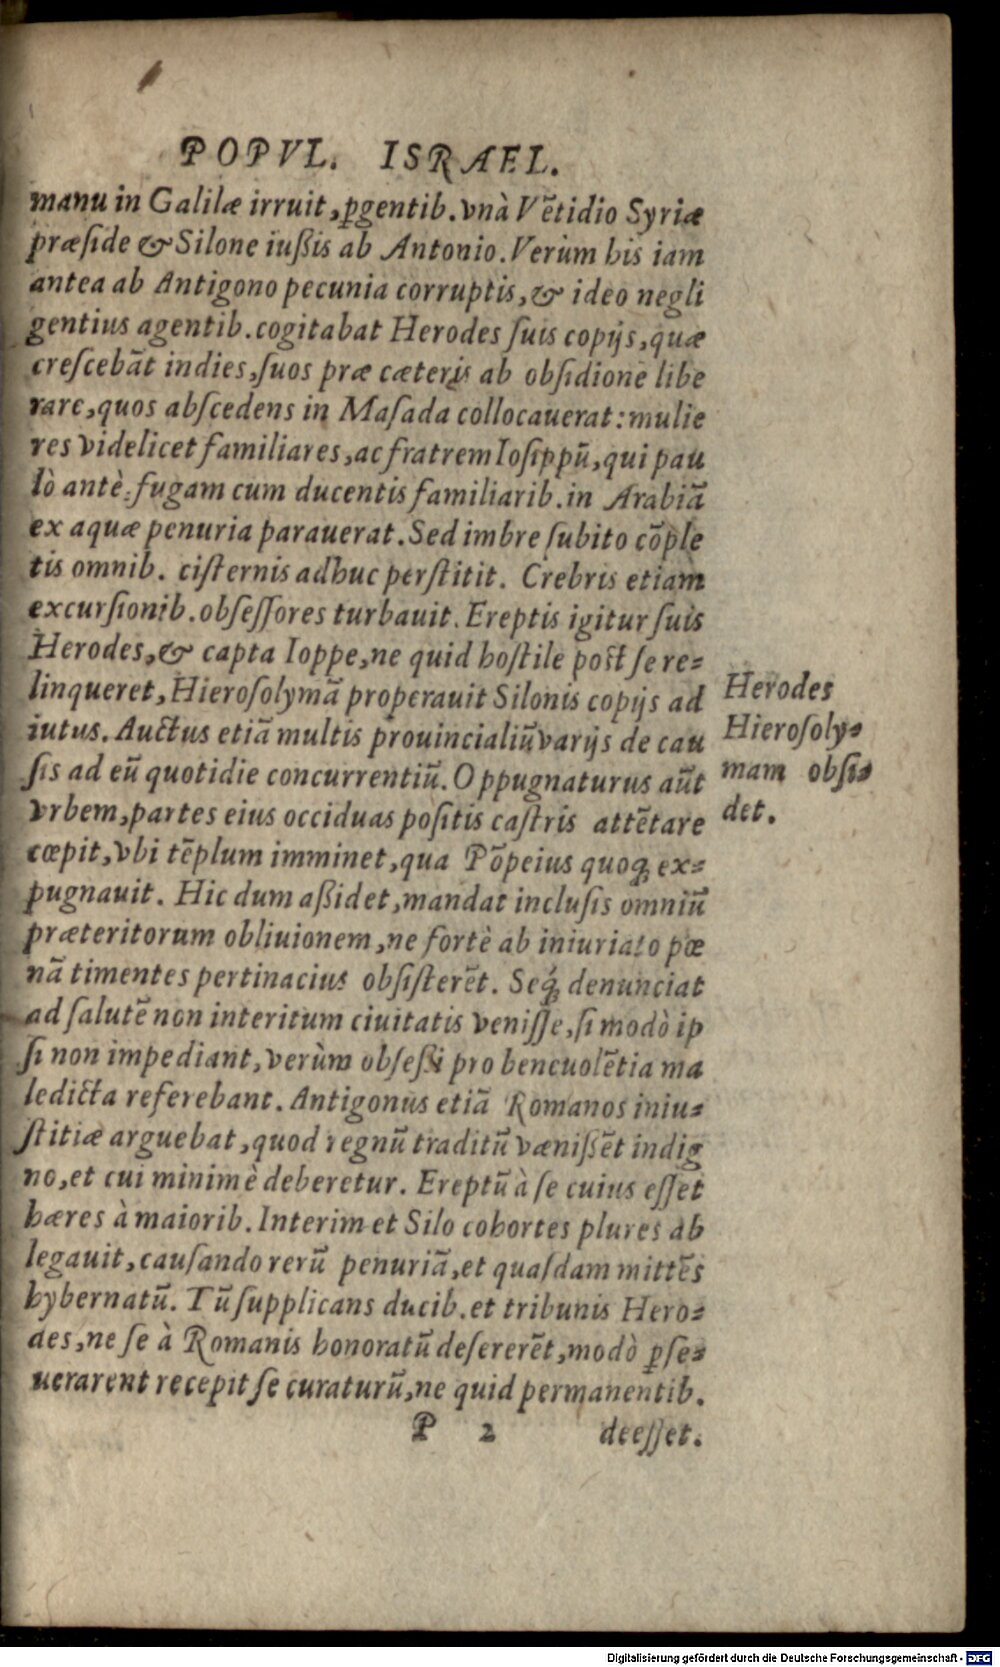 POPVL. ISRAEL.
manu in Galilæ irruit, ꝑgentib. vnà Vētidio Syriæ
præside & Silone iußis ab Antonio. Verùm his iam
antea ab Antigono pecunia corruptis, & ideo negli
gentius agentib. cogitabat Herodes suis copijs, quæ
crescebāt indies, suos præ cæteris ab obsidione libe
rare, quos abscedens in Masada collocauerat: mulie
res videlicet familiares, ac fratrem Iosippū, qui pau
lò antè fugam cum ducentis familiarib. in Arabiā
ex aquæ penuria parauerat. Sed imbre subito cōple
tis omnib. cisternis adhuc perstitit. Crebris etiam
excursionib. obsessores turbauit. Ereptis igitur suis
Herodes, & capta Ioppe, ne quid hostile post se re=
linqueret, Hierosolymā properauit Silonis copijs ad
iutus. Auctus etiā multis prouincialiū varijs de cau
sis ad eū quotidie concurrentiū. Oppugnaturus aūt
vrbem, partes eius occiduas positis castris attētare
cœpit, vbi tēplum imminet, qua Pōpeius quoqꝫ ex=
pugnauit. Hic dum aßidet, mandat inclusis omniū
præteritorum obliuionem, ne fortè ab iniuriato pœ
nā timentes pertinacius obsisterēt. Seqꝫ́ denunciat
ad salutē non interitum ciuitatis venisse, si modò ip
si non impediant, verùm obseßi pro beneuolētia ma
ledicta referebant. Antigonus etiā Romanos iniu=
stitiæ arguebat, quod regnū traditū vænißēt indig
no, et cui minimè deberetur. Ereptū à se cuius esset
hæres à maiorib. Interim et Silo cohortes plures ab
legauit, causando rerū penuriā, et quasdam mittēs
hybernatū. Tū supplicans ducib. et tribunis Hero=
des, ne se à Romanis honoratū desererēt, modò ꝑse=
uerarent recepit se curaturū, ne quid permanentib.
P 2 deesset.
Herodes
Hierosoly=
mam obsi=
det.
Digitalisierung gefördert durch die Deutsche Forschungsgemeinschaft - DFG